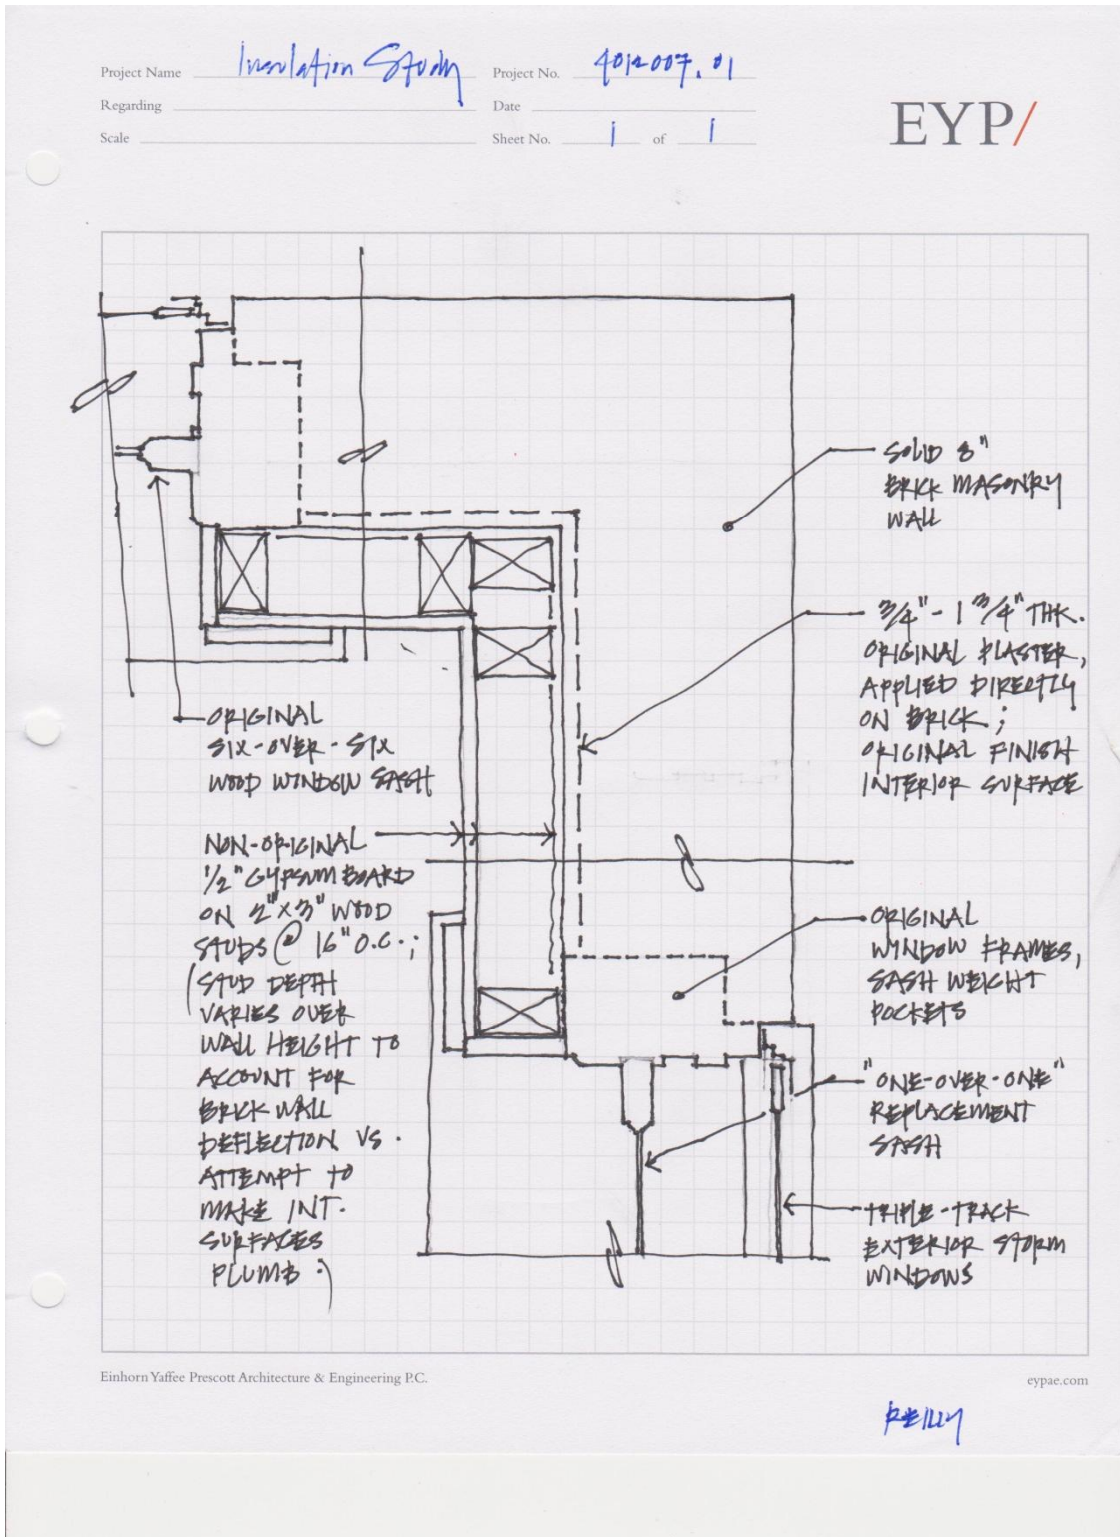 Project Name Insulation Study Project No. 4012007.01
Regarding Date
Scale Sheet No. 1 of 1
EYP/
SOLID 8"
BRICK MASONRY
WALL
3/4" - 1 3/4" THK.
ORIGINAL PLASTER,
APPLIED DIRECTLY
ON BRICK;
ORIGINAL FINISH
INTERIOR SURFACE
ORIGINAL
SIX-OVER-SIX
WOOD WINDOW SASH
NON-ORIGINAL
1/2" GYPSUM BOARD
ON 2"X3" WOOD
STUDS @ 16" O.C.;
(STUD DEPTH
VARIES OVER
WALL HEIGHT TO
ACCOUNT FOR
BRICK WALL
DEFLECTION VS.
ATTEMPT TO
MAKE INT.
SURFACES
PLUMB.)
ORIGINAL
WINDOW FRAMES,
SASH WEIGHT
POCKETS
"ONE-OVER-ONE"
REPLACEMENT
SASH
TRIPLE-TRACK
EXTERIOR STORM
WINDOWS
Einhorn Yaffee Prescott Architecture & Engineering P.C.
eypae.com
REILLY